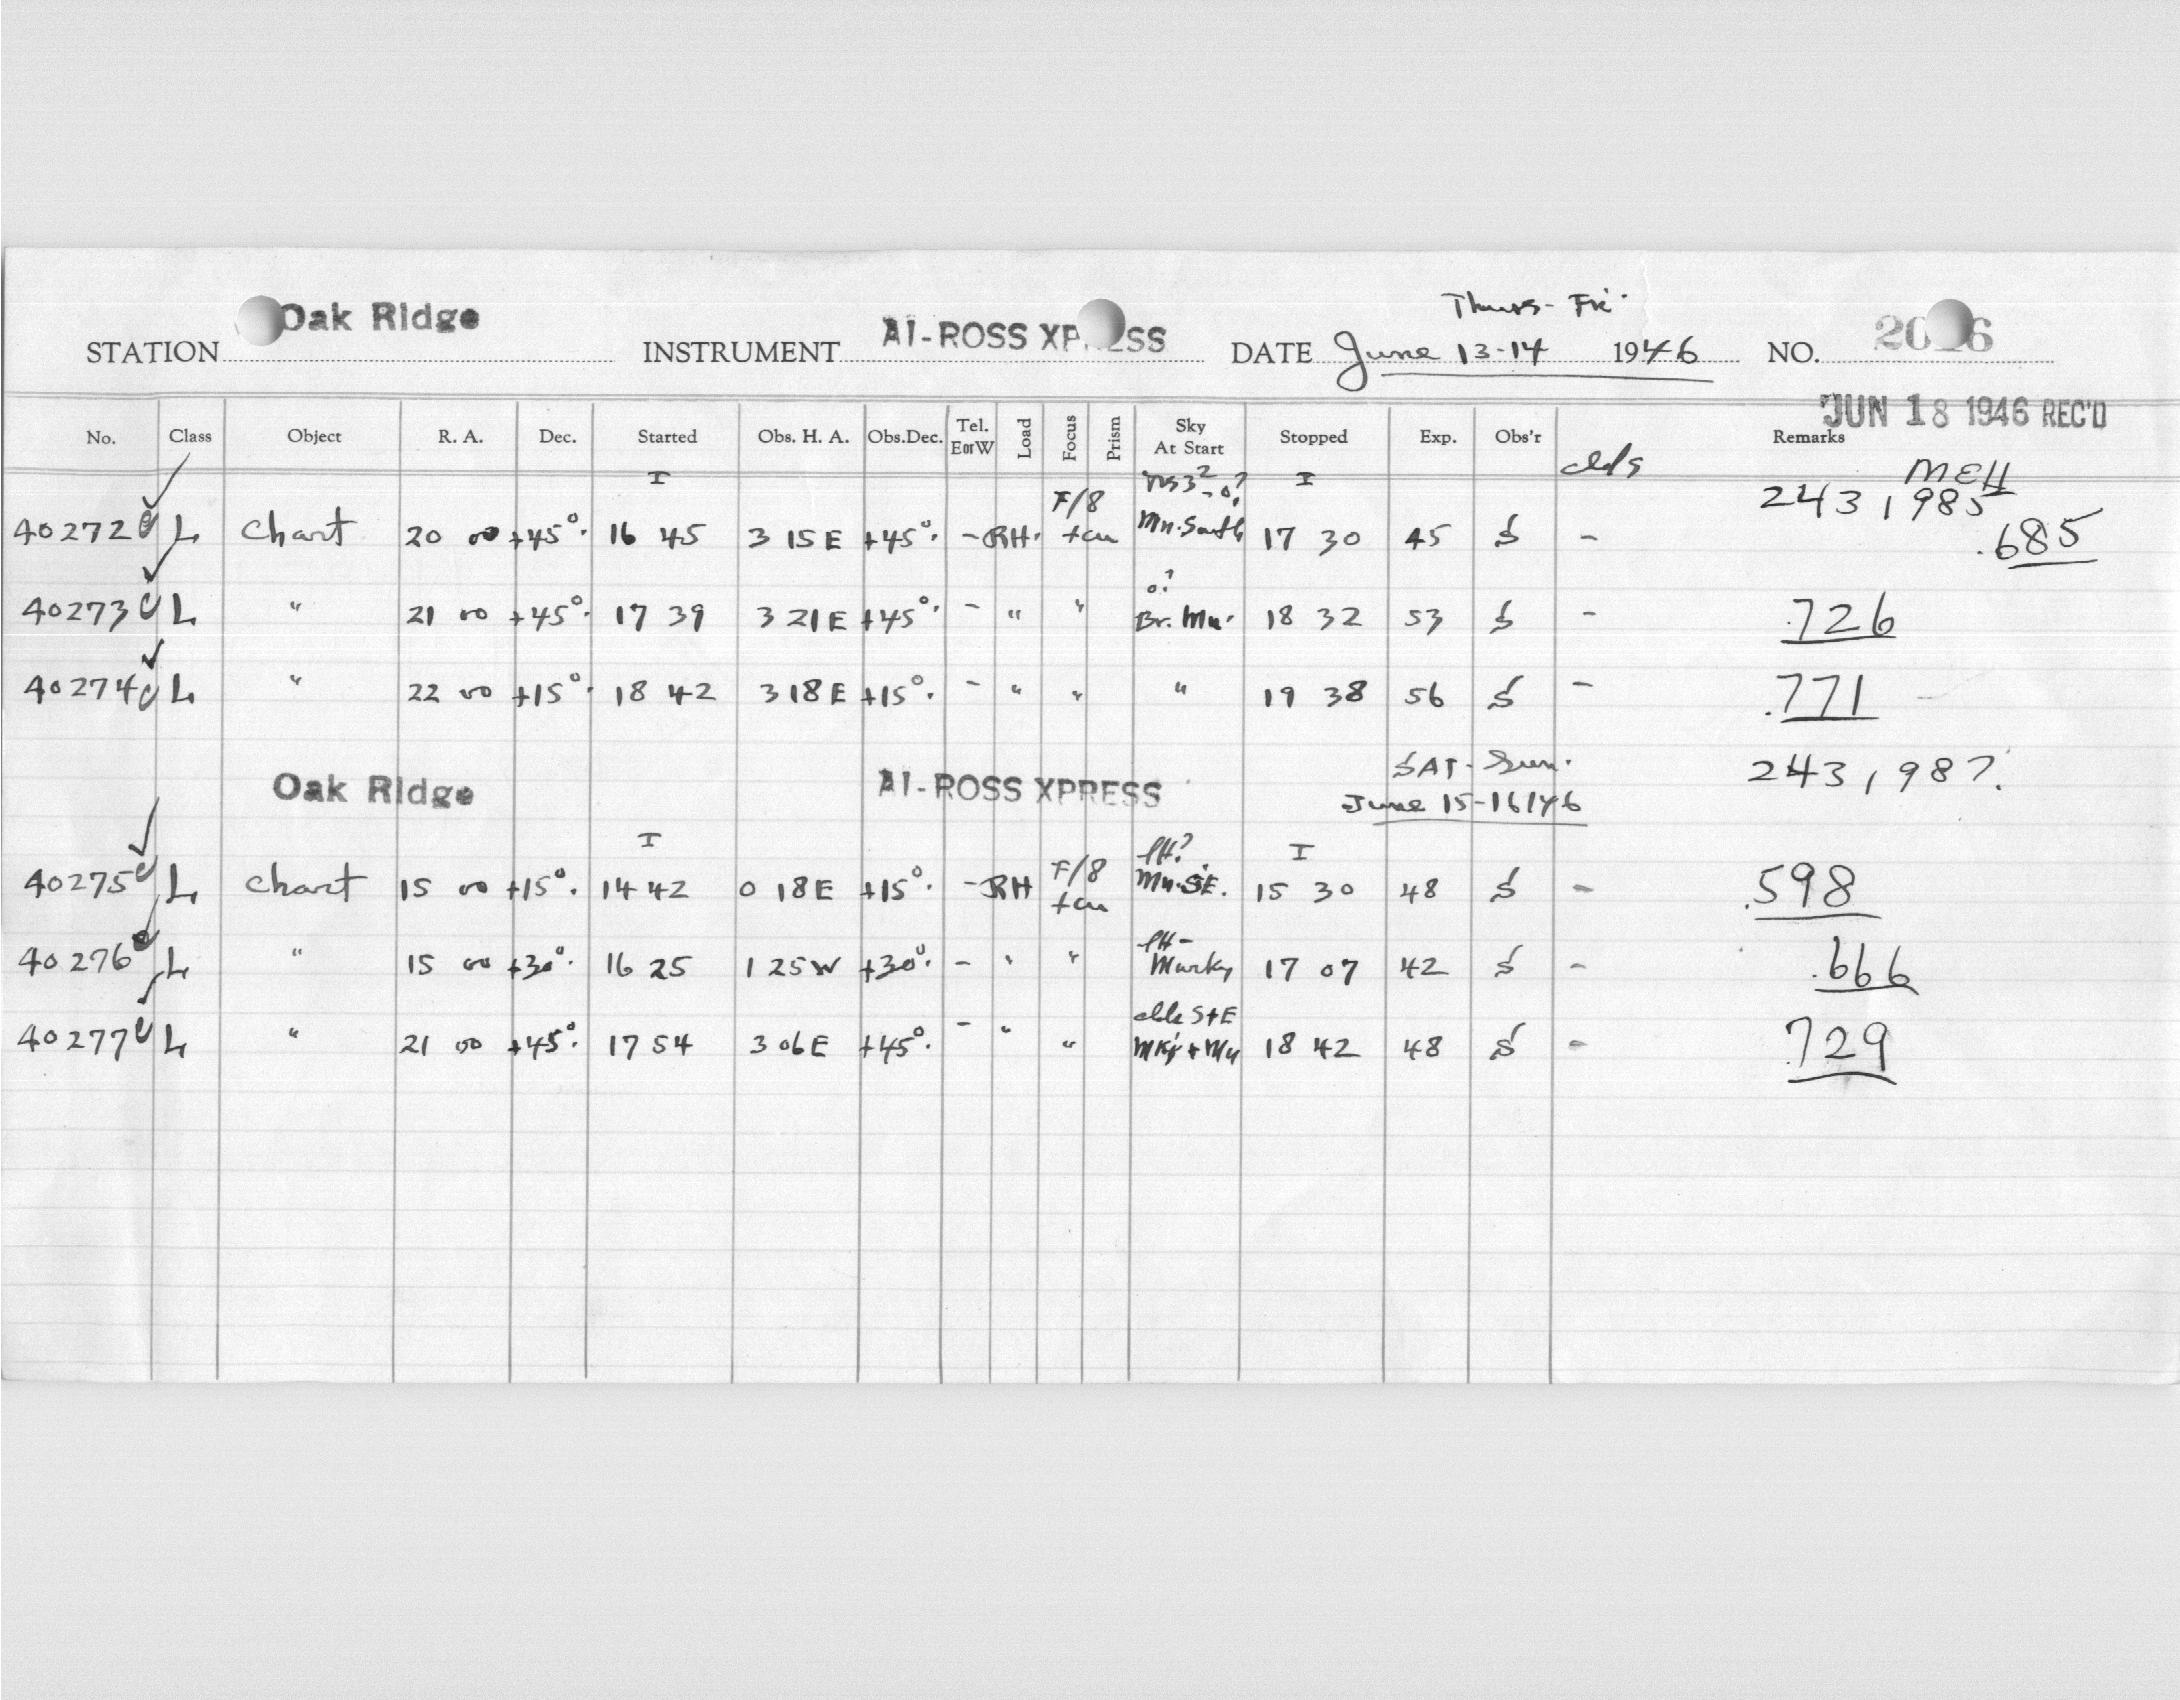 Oak Ridge AI-ROSS XPRESS Thurs - Fri.
STATION INSTRUMENT DATE June 13-14 1946 NO.
JUN 18 1946 REC'D
No. Class Object R. A. Dec. Started Obs. H. A. Obs.Dec. Tel. E or W Load Focus Prism Sky At Start Stopped Exp. Obs'r Remarks
clds MEH
I I 243,985
40272 L Chart 20 00 +45°. 16 45 3 15 E +45°. - RH. F/8 Mn. South 17 30 45 S - .685
40273 L " 21 00 +45°. 17 39 3 21 E +45°. - " " o? Br. Mn. 18 32 53 S - .726
40274 L " 22 00 +15°. 18 42 3 18 E +15°. - " " " 19 38 56 S - .771
Oak Ridge AI-ROSS XPRESS SAT - Sun. 243,987.
June 15-16/46
I I
40275 L Chart 15 00 +15°. 14 42 0 18 E +15°. - RH F/8 Mn. SE. 15 30 48 S - .598
40276 L " 15 00 +30°. 16 25 1 25 W +30°. - " " Murky 17 07 42 S - .666
40277 L " 21 00 +45°. 17 54 3 06 E +45°. - " " clds S+E Mky + Mn 18 42 48 S - .729